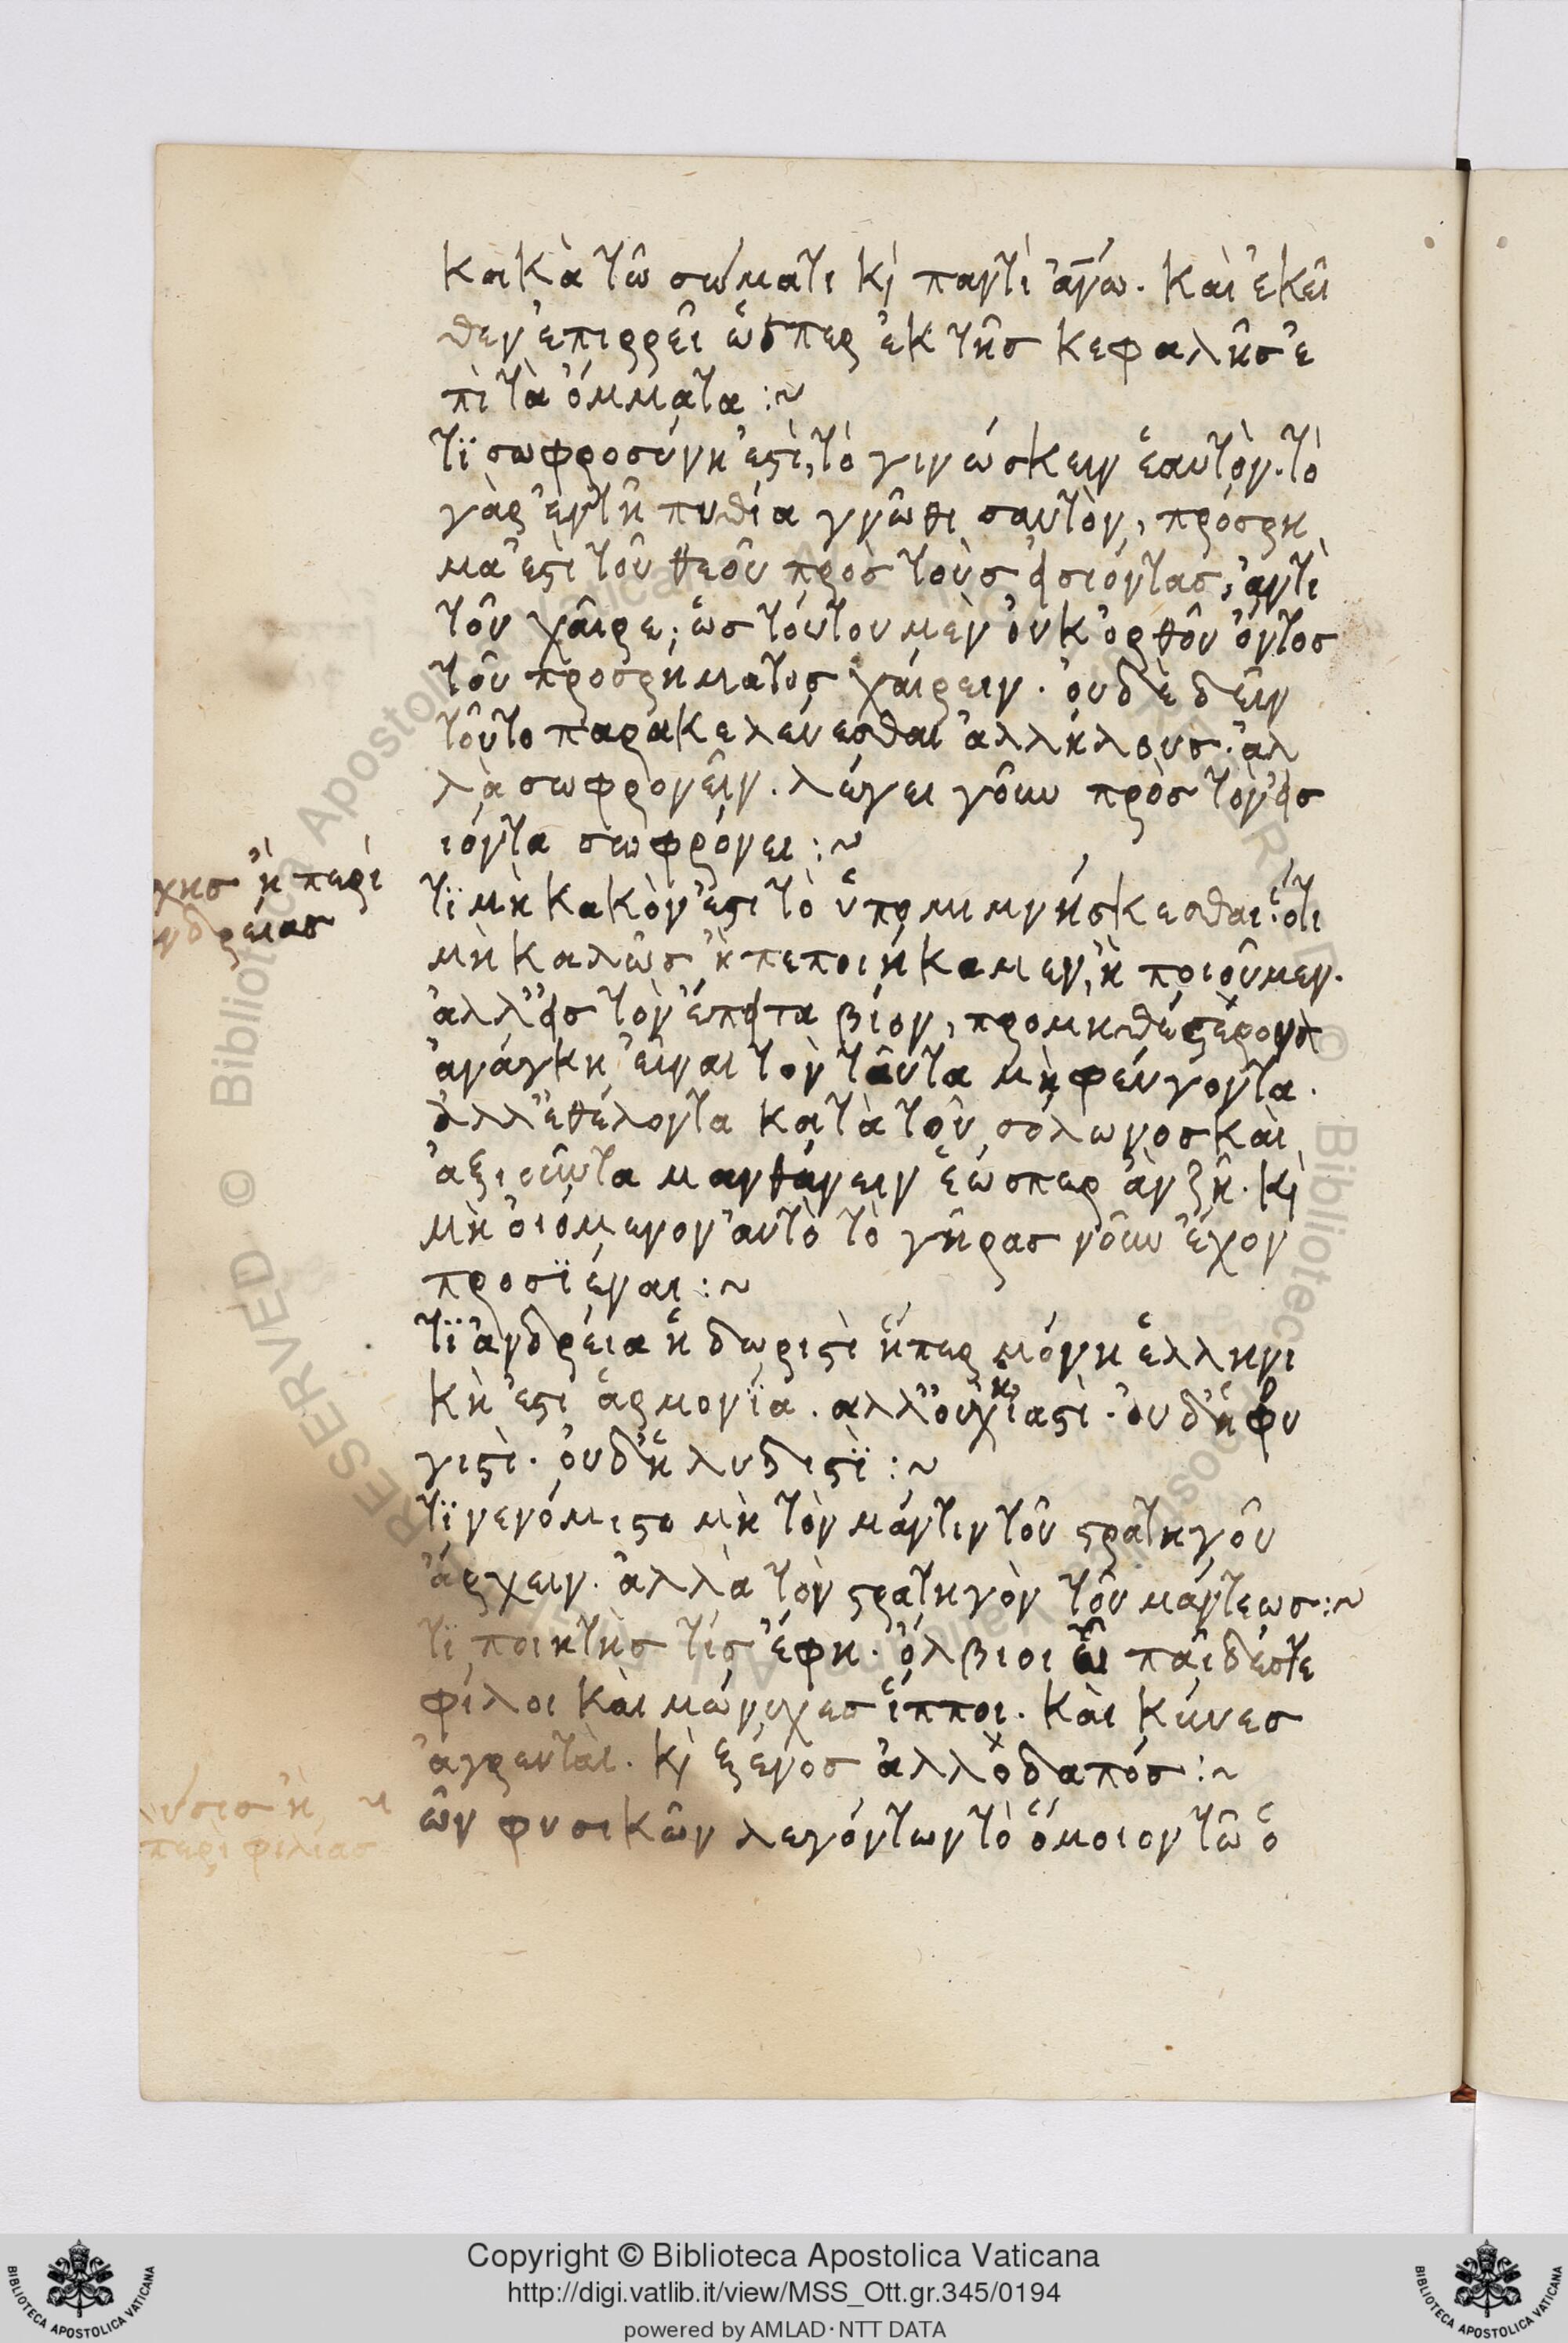 κακὰ τῶ σώματι κὶ παντὶ ἀν̅ω. καὶ ἐκεῖ
θεν ἐπιρρεῖ ὥσπερ ἐκ τῆς κεφαλῆς ἐ
πὶ τὰ ὄμματα :~
τϊ σωφροσύνη ἐστὶ, τὸ γινώσκειν ἑαυτὸν. τὸ
γὰρ ἐν τῆ πυθία γνῶθι σαυτὸν, πρόσρη
μα ἐστὶ τοῦ θεοῦ πρὸς τοὺς εἰσιόντας, ἀντὶ
τοῦ χαῖρε, ὡς τούτου μὲν οὐκ ὀρθοῦ ὄντος
τοῦ προσρήματος χαίρειν. οὐδὲ δεῖν
τοῦτο παρακελεύεσθαι ἀλλήλους. ἀλ
λὰ σωφρονεῖν. λέγει γοῦν πρὸς τὸν εἰσ
ιόντα σωφρόνει :~
χης ἢ περὶ
νδρείας
τϊ μὴ κακὸν ἐστι τὸ ὑπομιμνήσκεσθαι ὅτι
μὴ καλῶς ἢ πεποιήκαμεν, ἢ ποιοῦμεν.
ἀλλ' εἰς τὸν ἔπειτα βίον, προμηθέστερον
ἀνάγκη εἶναι τὸν ταῦτα μὴ φεύγοντα.
ἀλλ' ἐθέλοντα κατὰ τοῦ σόλωνος καὶ
ἀξιοῦντα μανθάνειν ἕωσπερ ἂν ζῆ. κὶ
μὴ οἰόμενον αὐτὸ τὸ γῆρας νοῦν ἔχον
προσϊέναι :~
τϊ ἀνδρεία ἡ δωριστὶ ἥπερ μόνη ἑλληνι
κὴ ἐστι ἁρμονϊα. αλλ' οὐχ' ἡ ἰαστὶ. οὐδ' ἡ φρυ
γιστὶ. οὐδ' ἡ λυδιστϊ :~
τϊ νενόμιστο μὴ τὸν μάντιν τοῦ στρατηγοῦ
ἄρχειν. ἀλλὰ τὸν στρατηγὸν τοῦ μάντεως :~
τϊ ποιητὴς τίς ἔφη. ὄλβιοι ὧ παῖδέστε
φίλοι καὶ μώνυχες ἵπποι. καὶ κύνες
ἀγρευταὶ. κὶ ξένος ἀλλοδαπός :~
ύσις ἢ
περὶ φιλίας
ῶν φυσικῶν λεγόντων τὸ ὅμοιον τῶ ὁ